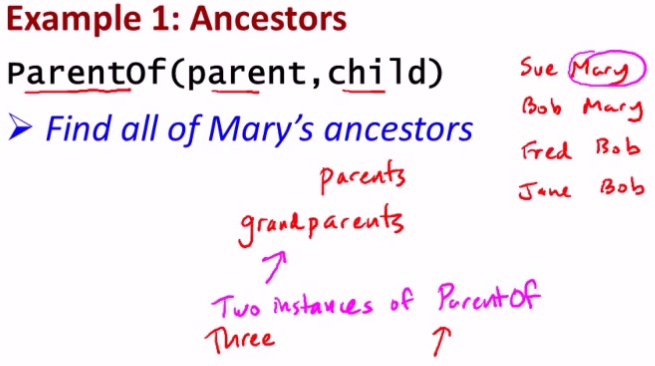 Example 1: Ancestors
ParentOf(parent,child)
➢ Find all of Mary's ancestors
Sue Mary
Bob Mary
Fred Bob
Jane Bob
parents
grandparents
Two instances of ParentOf
Three